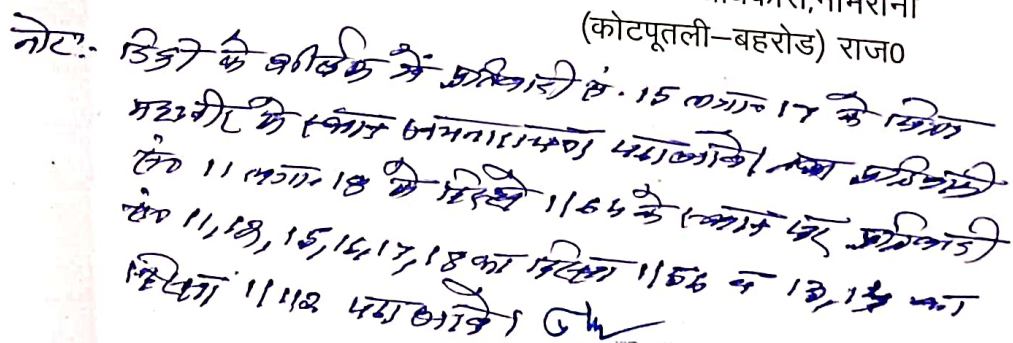 नीमराना
(कोटपूतली–बहरोड) राज0
नोट:- डिक्री के शीर्षक में प्रतिवादी सं. 15 लगा० 17 के पिता
महावीर के स्थान जयनारायण पढा जावे। तथा प्रतिवादी
सं० 11 लगा० 18 के हिस्से 1/64 के स्थान पर प्रतिवादी
सं० 11, 12, 15, 16, 17, 18 का हिस्सा 1/56 व 13, 14 का
हिस्सा 1/112 पढा जावे।